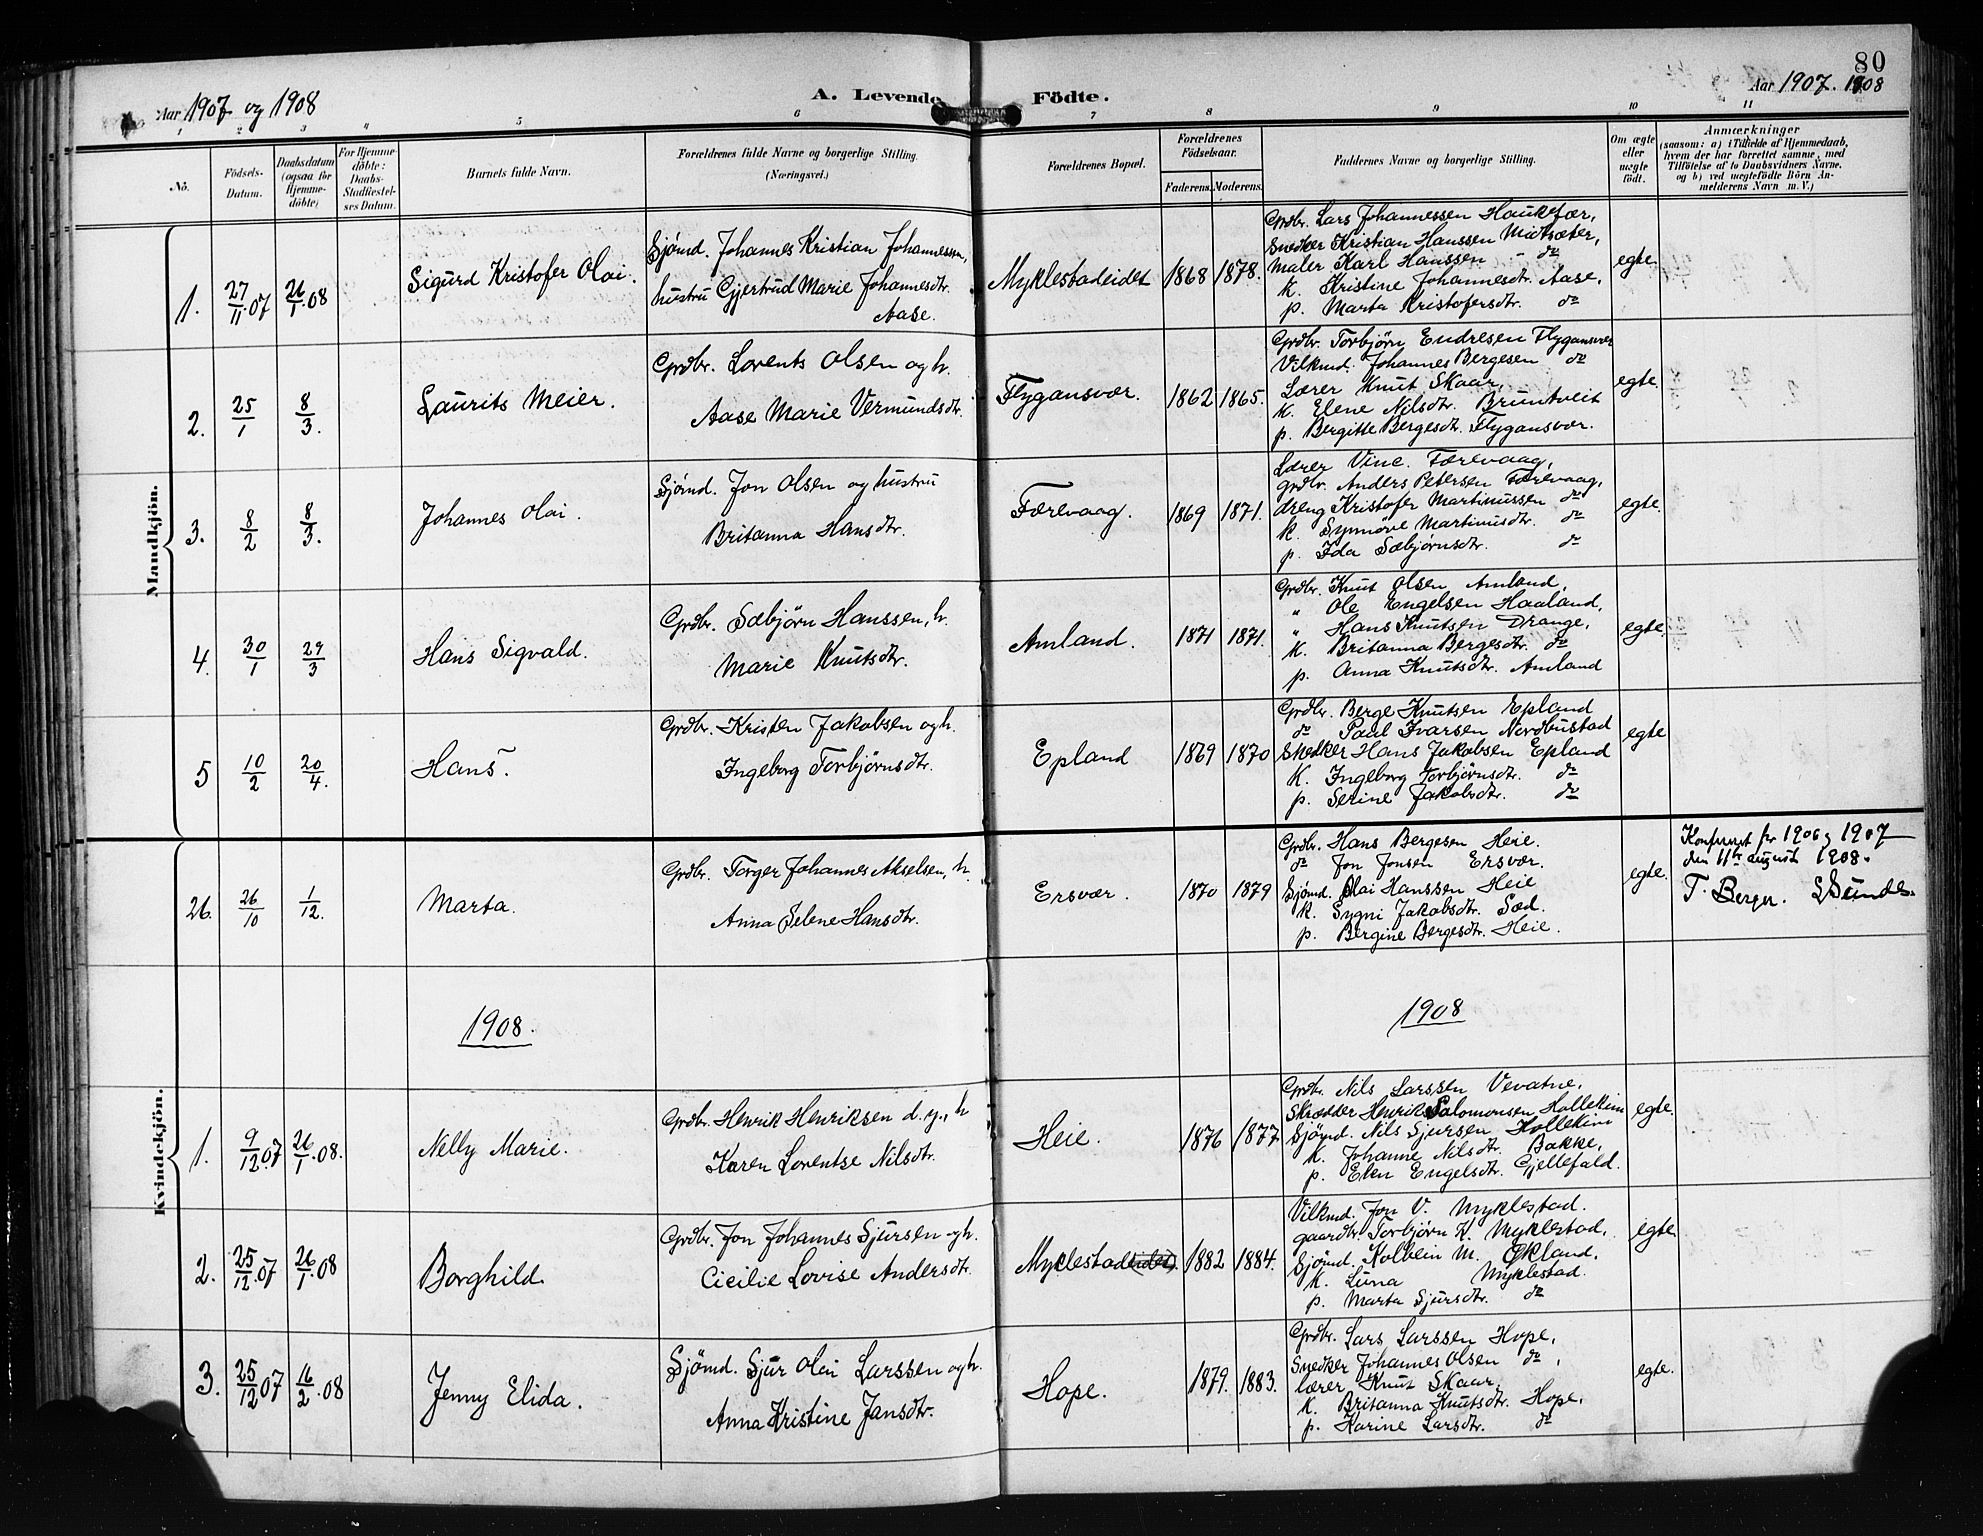 80
Aar 1907 og 1908
A. Levende Födte.
Aar 1907. 1908
1 2 3 4 5 6 7 8 9 10 11
No.
Födsels-Datum.
Daabsdatum (ogsaa for Hjemme-döbte)
For Hjemme-döbte: Daabs-Stadfæstel-ses Datum.
Barnets fulde Navn.
Forældrenes fulde Navne og borgerlige Stilling.
(Næringsvei.)
Forældrenes Bopæl.
Forældrenes Födselsaar.
Faderens. Moderens.
Faddernes Navne og borgerlige Stilling.
Om ægte eller uægte födt.
Anmærkninger
(saasom: a) i Tilfælde af Hjemmedaab,
hvem der har forrettet samme, med
Tilföielse af to Daabsvidners Navne,
og b) ved uægtefödte Börn An-
melderens Navn m. V.)
Mandkjön.
1. 27/11 07 26/1 08 Sigurd Kristofer Olai.
Sjömd. Johannes Kristian Johannessen,
hustru Gjertrud Marie Johannesdtr.
Aase.
Myklestadeidet 1868 1878.
Grdbr. Lars Johannessen Haukefær,
Snedker Kristian Hanssen Midtsæter,
Maler Karl Hanssen - do
K. Kristine Johannesdtr. Aase,
p. Marta Kristofersdtr. do
egte.
2. 25/1 8/3. Laurits Meier.
Grdbr. Lorents Olsen og h.
Aase Marie Vermundsdtr.
Flygansvær. 1862 1865.
Grdbr. Torbjörn Endresen Flygansvær
Vilkmd. Johannes Bergesen do
Lærer Knut Skaar,
K. Elene Nilsdtr. Bruntveit
p. Bergitte Bergesdtr. Flygansvær.
egte.
3. 8/2 8/3. Johannes Olai.
Sjömd. Jon Olsen og hustru
Britanna Hansdtr.
Færevaag. 1869 1871.
Lærer Vinc. Færevaag,
grdbr. Anders Petersen Færevaag,
dreng Kristofer Martinussen do
K. Synnöve Martinusdtr. do
p. Ida Sæbjörnsdtr. do
egte.
4. 30/1 29/3 Hans Sigvald.
Grdbr. Sæbjörn Hanssen, h.
Marie Knutsdtr.
Amland. 1871 1871.
Grdbr. Knut Olsen Amland,
" Ole Engelsen Haaland,
" Hans Knutsen Drange,
K. Britanna Bergesdtr. do
p. Anna Knutsdtr. Amland
egte.
5 10/2 20/4. Hans.
Grdbr. Kristen Jakobsen og h.
Ingeborg Torbjörnsdtr.
Epland 1869 1870
Grdbr. Berge Knutsen Epland
do Paul Ivarsen Nordhustad
Snedker Hans Jakobsen Epland
K. Ingeborg Torbjörnsdtr. do
p. Serine Jakobsdtr. do
egte
Kvindekjön.
26. 26/10 1/12. Marta.
Grdbr. Torger Johannes Akselsen, h.
Anna Selene Hansdtr.
Ersvær. 1870 1879
Grdbr. Hans Bergesen Heie.
do Jon Jonsen Ersvær.
Sjömd. Olai Hanssen Heie
K. Sygni Jakobsdtr. Sæd.
p. Bergine Bergesdtr. Heie.
egte.
Konfereret for 1906 og 1907
den 11te august 1908.
T. Berger.
1908.
1908
1. 9/12 07 26/1 08. Nelly Marie.
Grdbr. Henrik Henriksen d. y., h
Karen Lorentse Nilsdtr.
Heie. 1876 1877
Grdbr. Nils Larssen Vevatne,
Skrædder Henrik Salomonsen Hollekim
Sjömd. Nils Sjursen Hollekim
K. Johanne Nilsdtr. Bakke,
p. Elen Engelsdtr. Gjellefald.
egte.
2. 25/12 07 26/1 08 Borghild.
Grdbr. Jon Johannes Sjursen og h.
Cicilie Lovise Andersdtr.
Myklestad(eidet). 1882 1884.
Vilkmd. Jon V. Myklestad.
gaardbr. Torbjörn K. Myklestad,
Sjömd. Kolbein M. Økland.
K. Luna Myklestad.
p. Marta Sjursdtr. do
egte.
3. 25/12 07 16/2 08 Jenny Elida.
Sjömd. Sjur Olai Larssen og h.
Anna Kristine Jansdtr.
Hope. 1879. 1883.
Grdbr. Lars Larssen Hope,
Snedker Johannes Olsen do,
lærer Knut Skaar.
K. Britanna Knutsdtr. Hope,
p. Karine Larsdtr. do
egte.